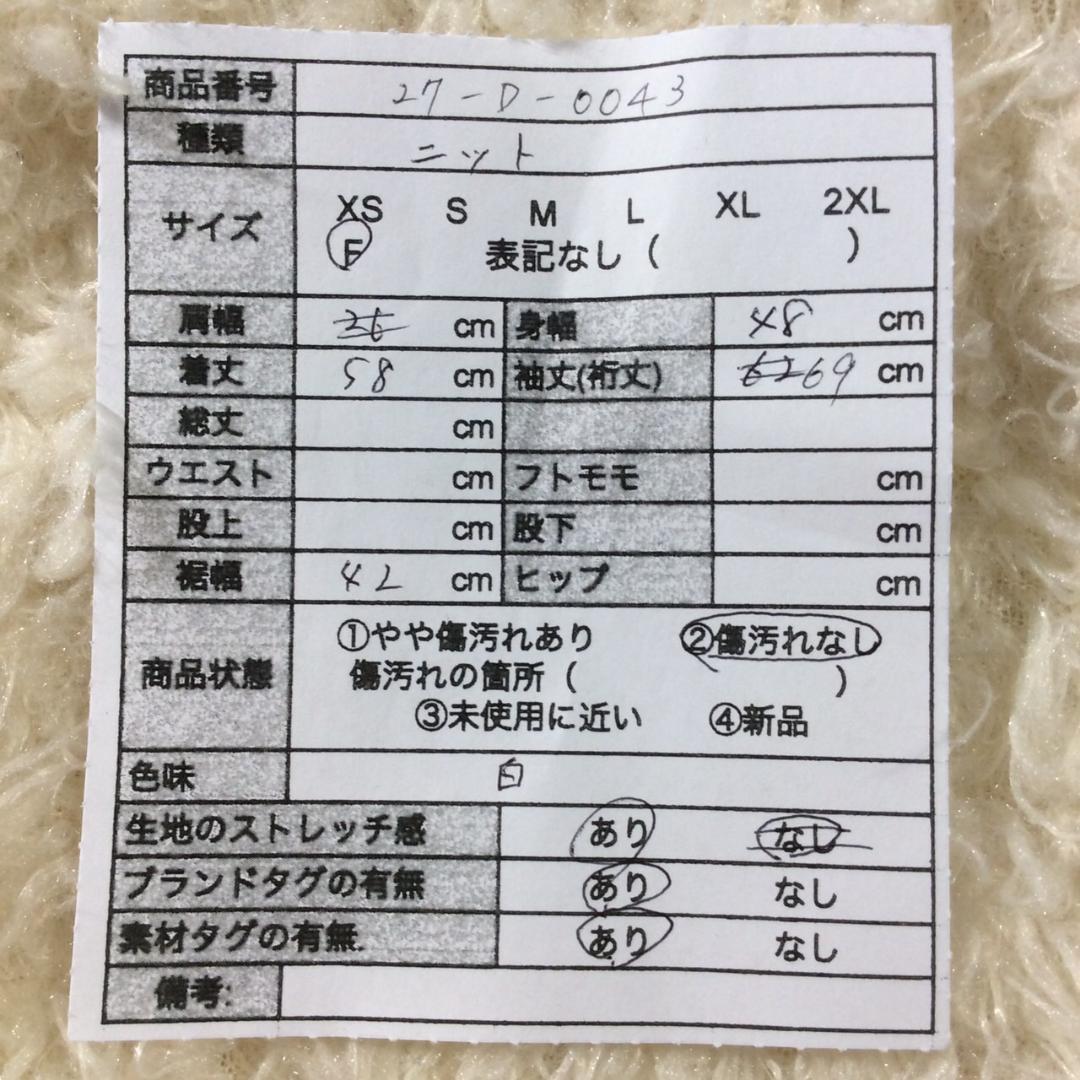 商品番号 27-D-0043
種類 ニット
サイズ XS S M L XL 2XL
F 表記なし ( )
肩幅 cm 身幅 48 cm
着丈 58 cm 袖丈(裄丈) 69 cm
総丈 cm
ウエスト cm フトモモ cm
股上 cm 股下 cm
裾幅 42 cm ヒップ cm
商品状態 ①やや傷汚れあり ②傷汚れなし
傷汚れの箇所 ( )
③未使用に近い ④新品
色味 白
生地のストレッチ感 あり なし
ブランドタグの有無 あり なし
素材タグの有無. あり なし
備考: